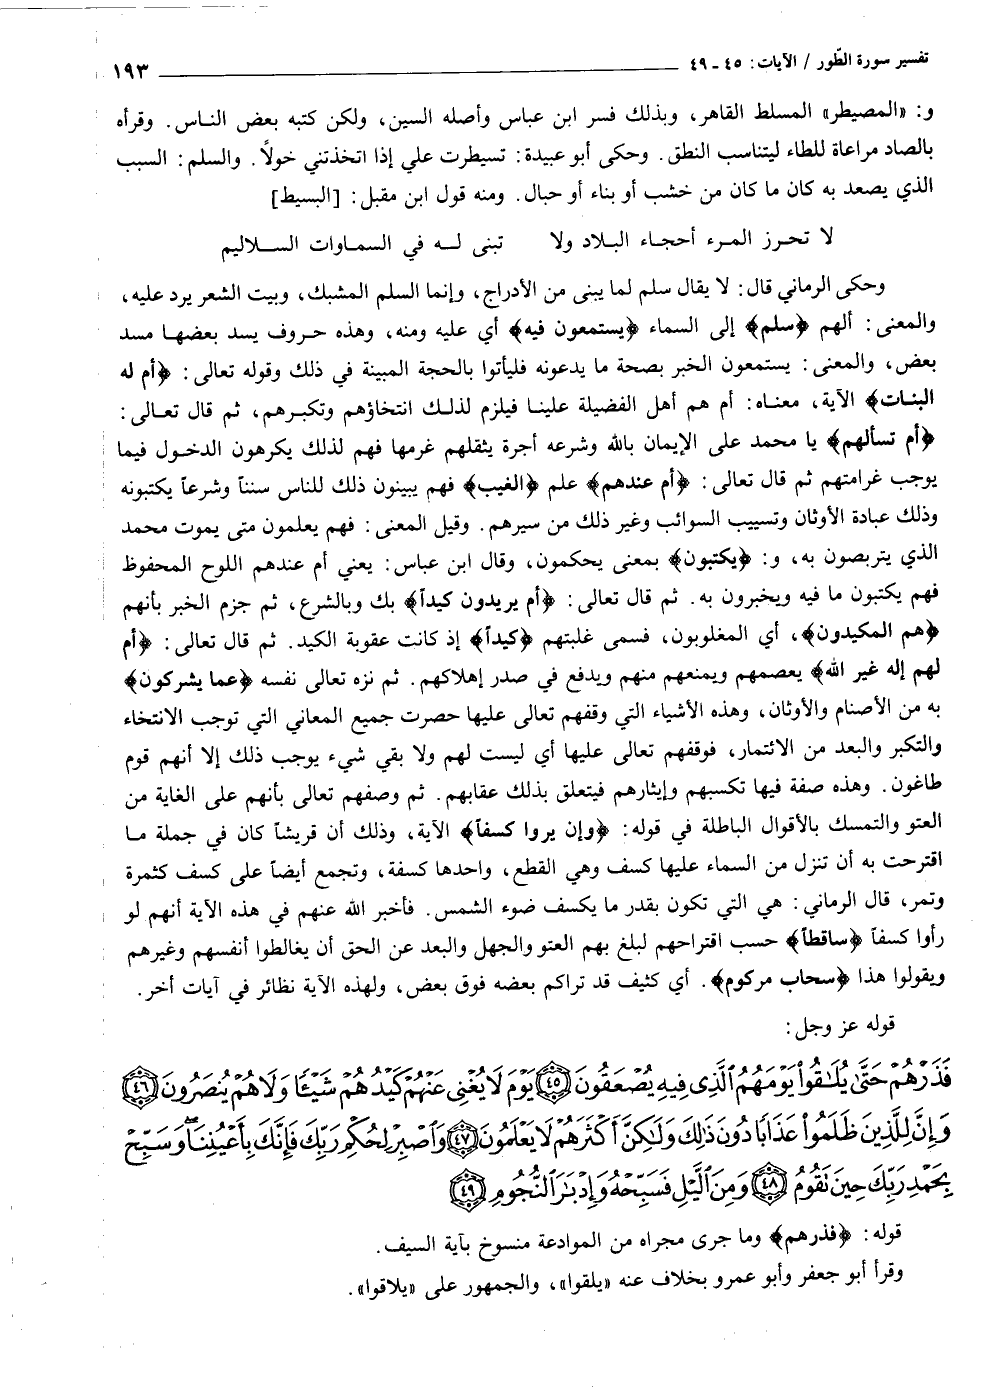 تفسير سورة الطّور / الآيات: ٤٥ - ٤٩ ١٩٣
و: «المصيطر» المسلط القاهر، وبذلك فسر ابن عباس وأصله السين، ولكن كتبه بعض الناس. وقرأه
بالصاد مراعاة للطاء ليتناسب النطق. وحكى أبو عبيدة: تسيطرت علي إذا اتخذتني خولاً. والسلم: السبب
الذي يصعد به كان ما كان من خشب أو بناء أو حبال. ومنه قول ابن مقبل: [البسيط]
لا تحرز المرء أحجاء البلاد ولا تبنى له في السماوات السلاليم
وحكى الرماني قال: لا يقال سلم لما يبنى من الأدراج، وإنما السلم المشبك، وبيت الشعر يرد عليه،
والمعنى: ألهم ﴿سلم﴾ إلى السماء ﴿يستمعون فيه﴾ أي عليه ومنه، وهذه حروف يسد بعضها مسد
بعض، والمعنى: يستمعون الخبر بصحة ما يدعونه فليأتوا بالحجة المبينة في ذلك وقوله تعالى: ﴿أم له
البنات﴾ الآية، معناه: أم هم أهل الفضيلة علينا فيلزم لذلك انتخاؤهم وتكبرهم، ثم قال تعالى:
﴿أم تسألهم﴾ يا محمد على الإيمان بالله وشرعه أجرة يثقلهم غرمها فهم لذلك يكرهون الدخول فيما
يوجب غرامتهم ثم قال تعالى: ﴿أم عندهم﴾ علم ﴿الغيب﴾ فهم يبينون ذلك للناس سنناً وشرعاً يكتبونه
وذلك عبادة الأوثان وتسييب السوائب وغير ذلك من سيرهم. وقيل المعنى: فهم يعلمون متى يموت محمد
الذي يتربصون به، و: ﴿يكتبون﴾ بمعنى يحكمون، وقال ابن عباس: يعني أم عندهم اللوح المحفوظ
فهم يكتبون ما فيه ويخبرون به. ثم قال تعالى: ﴿أم يريدون كيداً﴾ بك وبالشرع، ثم جزم الخبر بأنهم
﴿هم المكيدون﴾، أي المغلوبون، فسمى غلبتهم ﴿كيداً﴾ إذ كانت عقوبة الكيد. ثم قال تعالى: ﴿أم
لهم إله غير الله﴾ يعصمهم ويمنعهم منهم ويدفع في صدر إهلاكهم. ثم نزه تعالى نفسه ﴿عما يشركون﴾
به من الأصنام والأوثان، وهذه الأشياء التي وقفهم تعالى عليها حصرت جميع المعاني التي توجب الانتخاء
والتكبر والبعد من الائتمار، فوقفهم تعالى عليها أي ليست لهم ولا بقي شيء يوجب ذلك إلا أنهم قوم
طاغون. وهذه صفة فيها تكسبهم وإيثارهم فيتعلق بذلك عقابهم. ثم وصفهم تعالى بأنهم على الغاية من
العتو والتمسك بالأقوال الباطلة في قوله: ﴿وإن يروا كسفاً﴾ الآية، وذلك أن قريشاً كان في جملة ما
اقترحت به أن تنزل من السماء عليها كسف وهي القطع، واحدها كسفة، وتجمع أيضاً على كسف كثمرة
وتمر، قال الرماني: هي التي تكون بقدر ما يكسف ضوء الشمس. فأخبر الله عنهم في هذه الآية أنهم لو
رأوا كسفاً ﴿ساقطاً﴾ حسب اقتراحهم لبلغ بهم العتو والجهل والبعد عن الحق أن يغالطوا أنفسهم وغيرهم
ويقولوا هذا ﴿سحاب مركوم﴾. أي كثيف قد تراكم بعضه فوق بعض، ولهذه الآية نظائر في آيات أخر.
قوله عز وجل:
فَذَرْهُمْ حَتَّىٰ يُلَٰقُوا۟ يَوْمَهُمُ ٱلَّذِى فِيهِ يُصْعَقُونَ ﴿٤٥﴾ يَوْمَ لَا يُغْنِى عَنْهُمْ كَيْدُهُمْ شَيْـًٔا وَلَا هُمْ يُنصَرُونَ ﴿٤٦﴾
وَإِنَّ لِلَّذِينَ ظَلَمُوا۟ عَذَابًا دُونَ ذَٰلِكَ وَلَٰكِنَّ أَكْثَرَهُمْ لَا يَعْلَمُونَ ﴿٤٧﴾ وَٱصْبِرْ لِحُكْمِ رَبِّكَ فَإِنَّكَ بِأَعْيُنِنَا ۖ وَسَبِّحْ
بِحَمْدِ رَبِّكَ حِينَ تَقُومُ ﴿٤٨﴾ وَمِنَ ٱلَّيْلِ فَسَبِّحْهُ وَإِدْبَٰرَ ٱلنُّجُومِ ﴿٤٩﴾
قوله: ﴿فذرهم﴾ وما جرى مجراه من الموادعة منسوخ بآية السيف.
وقرأ أبو جعفر وأبو عمرو بخلاف عنه «يلقوا»، والجمهور على «يلاقوا».